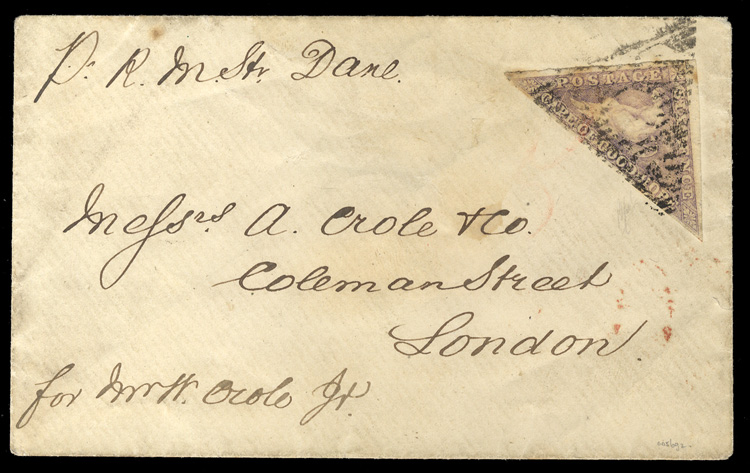 P. R. M. Str. Dane.
POSTAGE
CAPE OF GOOD HOPE
Messrs A. Crole & Co.
Coleman Street
London.
for Mr W. Crole Jr.